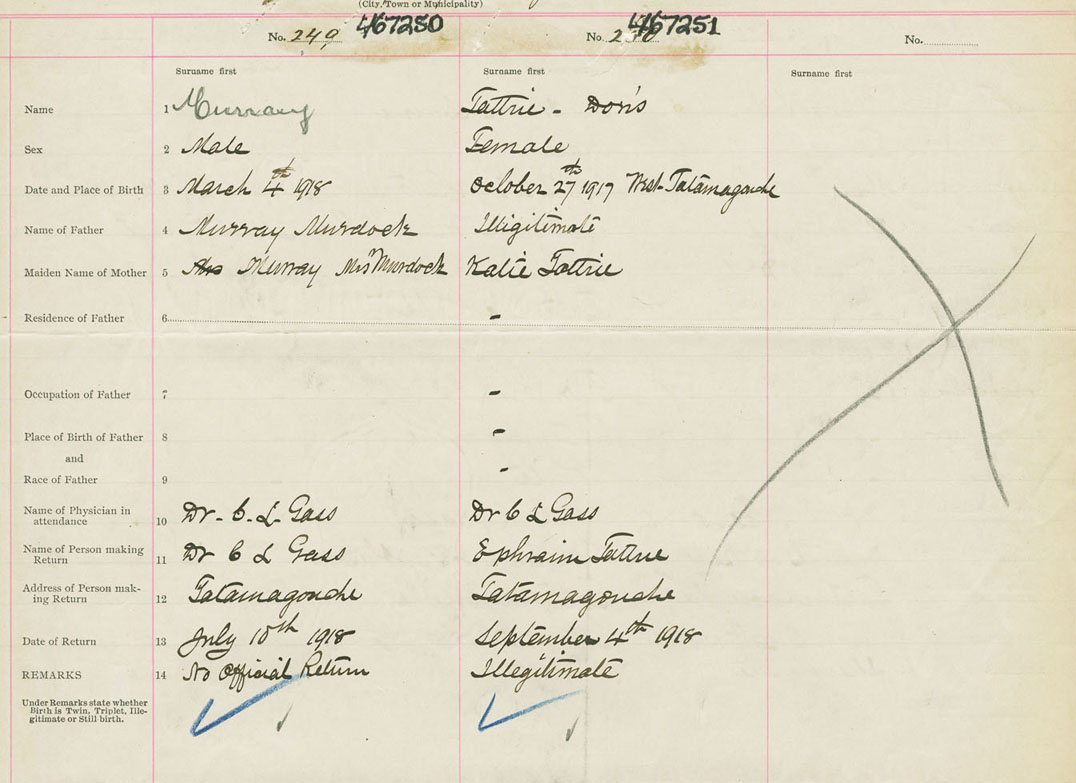 (City, Town or Municipality)
No. 249 467250 No. 250 467251 No.
Surname first Surname first Surname first
Name 1 Murray Tattrie - Doris
Sex 2 Male Female
Date and Place of Birth 3 March 4th 1918 October 27th 1917 West-Tatamagouche
Name of Father 4 Murray Murdock Illigitimate
Maiden Name of Mother 5 Mrs Murray Mrs Murdock Katie Tattrie
Residence of Father 6 -
Occupation of Father 7 -
Place of Birth of Father 8 -
and
Race of Father 9 -
Name of Physician in
attendance 10 Dr. C. L. Gass Dr C L Gass
Name of Person making
Return 11 Dr C L Gass Ephraim Tattrie
Address of Person mak-
ing Return 12 Tatamagouche Tatamagouche
Date of Return 13 July 10th 1918 September 4th 1918
REMARKS 14 No Official Return Illegitimate
Under Remarks state whether
Birth is Twin, Triplet, Ille-
gitimate or Still birth.